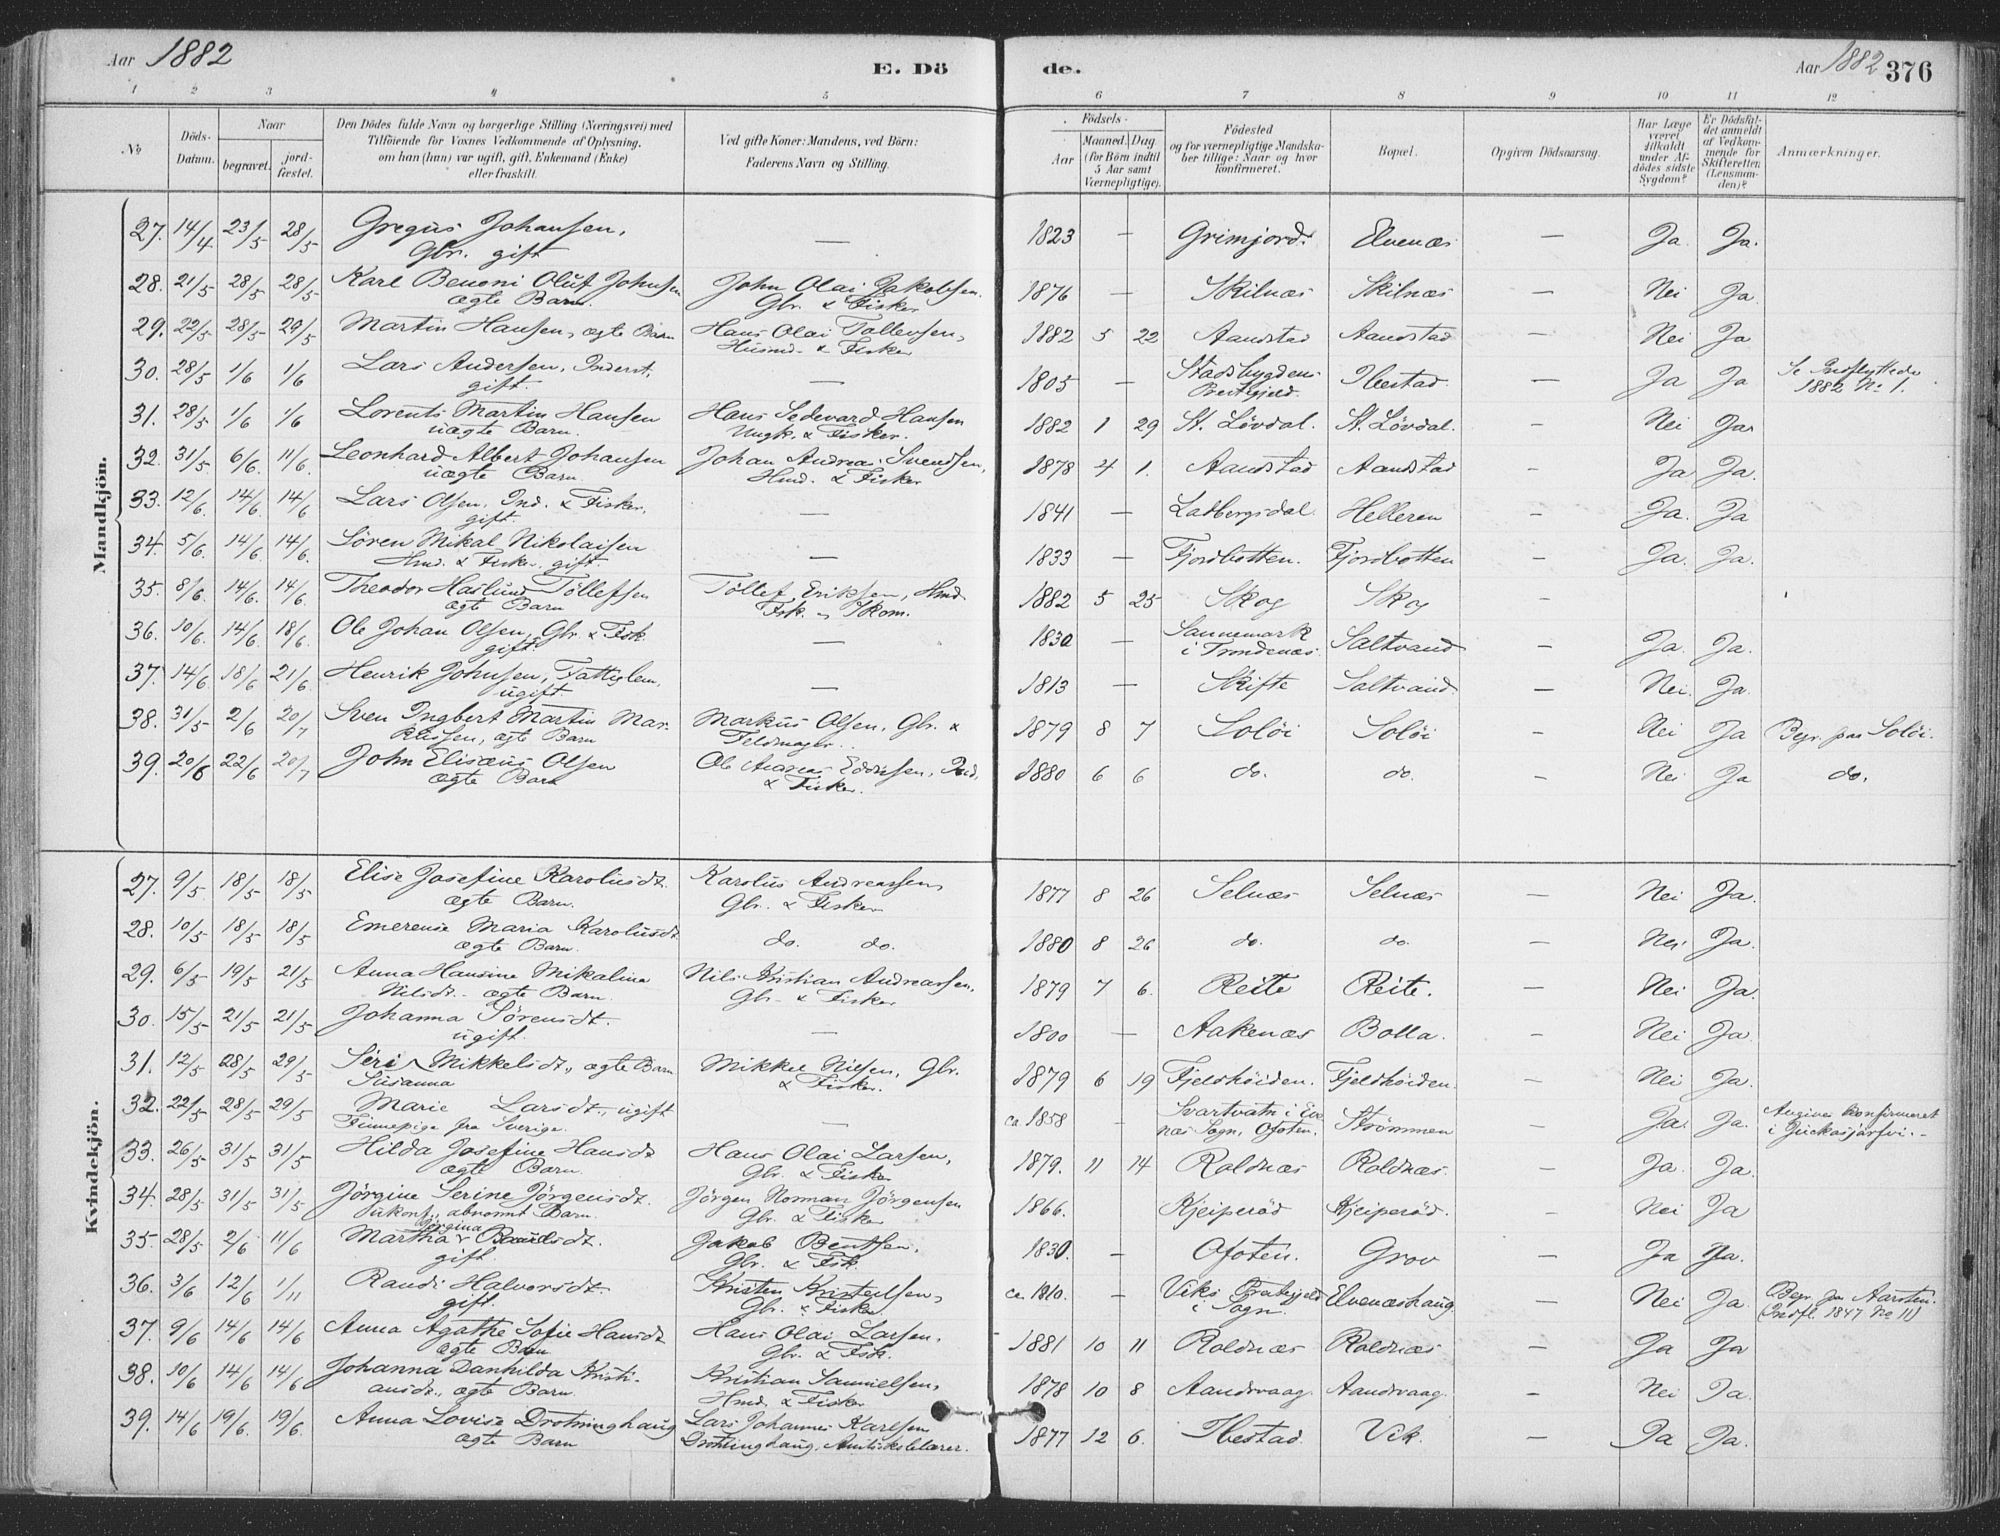 Aar 1882
E. Dö
de.
Aar 1882 376
1 2 3 4 5 6 7 8 9 10 11 12
No
Döds-Datum.
Naar
begravet.
jord-fæstet.
Den Dödes fulde Navn og borgerlige Stilling (Næringsvei) med
Tilföiende for Voxnes Vedkommende af Oplysning,
om han (hun) var ugift, gift, Enkemand (Enke)
eller fraskilt.
Ved gifte Koner: Mandens, ved Börn:
Faderens Navn og Stilling.
Födsels-
Aar
Maaned. Dag.
(for Börn indtil
5 Aar samt
Værnepligtige).
Födested
og for værnepligtige Mandska-
ber tillige: Naar og hvor
konfirmeret.
Bopæl.
Opgiven Dödsaarsag.
Har Læge
været
tilkaldt
under Af-
dödes sidste
Sygdom?
Er Dödsfal-
det anmeldt
af Vedkom-
mende for
Skifteretten
(Lensman-
den)?
Anmærkninger.
Mandkjön.
27. 14/4 23/5 28/5 Gregus Johansen, — 1823 — Grimjord. Elvenæs — Ja. Ja.
Gbr. gift
28. 21/5 28/5 28/5 Karl Benoni Oluf Johnsen John Olai Jakobsen. 1876 — Skilnæs Skilnæs — Nei Ja
ægte Barn. Gbr. & Fisker
29. 22/5 28/5 29/5 Martin Hansen, ægte Barn Hans Olai Tollevsen, 1882 5 22 Aandstad Aandstad — Nei Ja
Husmd. & Fisker
30. 28/5 1/6 1/6 Lars Andersen, Inderst, — 1805 — Stadsbygdens Ibestad. — Ja Ja Se Indflyttede
gift. Prestegjeld. 1882 No 1.
31. 28/5 1/6 1/6 Lorents Martin Hansen Hans Sedevard Hansen 1882 1 29 St. Lövdal. St. Lövdal. — Nei Ja
uægte Barn. Ungk. & Fisker.
32. 31/5 6/6. 11/6. Leonhard Albert Johansen Johan Andreas Svendsen, 1878 4 1. Aandstad Aandstad — Ja Ja.
uægte Barn Hmd. & Fisker
33. 12/6. 14/6. 14/6 Lars Olsen, Ind. & Fisker, — 1841 — Ladbergsdal. Helleren — Ja. Ja
gift.
34. 5/6. 14/6 14/6. Sören Mikal Nikolaisen — 1833 — Fjordbotten. Fjordbotten — Ja. Ja.
Hmd. & Fisker, gift.
35. 8/6. 14/6. 14/6. Theodor Haslund Töllefsen Töllef Eriksen, Hmd 1882 5 25 Skog Skog —
ægte Barn Fsk. & Skom.
36. 10/6. 14/6 18/6 Ole Johan Olsen, Gbr. & Fisk. — 1830 — Sannemark Saltvand — Ja. Ja.
gift. i Trondenæs.
37. 14/6. 18/6 21/6 Henrik Johnsen, Fattiglem, — 1813 — Skifte Saltvand — Nei. Ja.
ugift
38. 31/5 2/6 20/7 Sven Ingbert Martin Mar- Markus Olsen, Gbr. & 1879 8 7 Solöi Solöi — Nei Ja Begr. paa Solöi.
kussen, ægte Barn Feldmager.
39. 20/6 22/6 20/7 John Elisæus Olsen Ole Andreas Eddissen, Ind. 1880 6 6 do. do. — Nei Ja do.
ægte Barn & Fisker.
Kvindekjön.
27. 9/5 18/5 18/5 Elise Josefine Karolusdt. Karolus Andreassen, 1877 8 26 Selnæs Selnæs — Nei Ja.
ægte Barn. Gbr. & Fisker
28. 10/5 18/5 18/5 Emerense Maria Karolusdt do. do. 1880 8 26 do. do. — Nei Ja.
ægte Barn.
29. 6/5 19/5 21/5 Anna Hansine Mikaline Nils Kristian Andreassen, 1879 7 6. Reite Reite. — Nei Ja.
Nilsdt. ægte Barn. Gbr. & Fisker
30. 15/5 21/5 21/5 Johanna Sörensdt. — 1800 — Aakenæs Bolla. — Nei Ja.
ugift.
31. 12/5 28/5 29/5 Seri Mikkelsdt., ægte Barn Mikkel Nilsen, Gbr. 1879 6 19 Fjeldhöiden. Fjeldhöiden. — Nei Ja.
Susanna & Fisker.
32. 22/5 28/5 29/5 Marie Larsdt., ugift — ca 1858 Svartvatn i Eve Strömmen — Ja. Ja. Angives konfirmeret
Finnepige fra Sverige. næs Sogn, Ofoten. i Juckasjärfvi.
33. 26/5 31/5 31/5 Hilda Josefine Hansdt Hans Olai Larsen, 1879. 11 14 Roldnæs Roldnæs. — Ja. Ja.
ægte Barn. Gbr. & Fisker
34. 28/5 31/5 31/5 Jörgine Serine Jörgensdt. Jörgen Norman Jörgensen 1866. Kjeiperöd Kjeiperöd. — Nei Ja
ukonf., abnormt Barn. Gbr. & Fisker
35. 28/5 2/6 11/6 Martha Jörgina dt. Jakob Bentsen, 1830. — Ofoten. Grov — Ja Ja.
gift. Gbr. & Fsk.
36. 3/6 12/6 1/11 Randi Halvorsdt. Kristen Kristensen, ca. 1810. — Viks Prestegjeld Elveneshaug — Nei Ja. Begr. paa Aarsten.
gift. Gbr. & Fisker i Sogn. (Indfl. 1847 No 11)
37. 9/6 14/6 14/6 Anna Agathe Sofie Hansdt Hans Olai Larsen. 1881 10 11 Roldnæs Roldnæs — Ja Ja
ægte Barn Gbr. & Fsk.
38. 10/6 14/6 14/6 Johanna Danhilda Kristi- Kristian Samuelsen, 1878 10 8 Aandvaag. Aandvaag. — Nei Ja.
ansdt., ægte Barn. Hmd. & Fisker
39. 14/6 19/6. 19/6. Anna Lovise Drotninghaug Lars Johannes Karlsen 1877 12 6. Ibestad. Vik. — Ja Ja.
ægte Barn Drotninghaug, Amtsskolelærer.